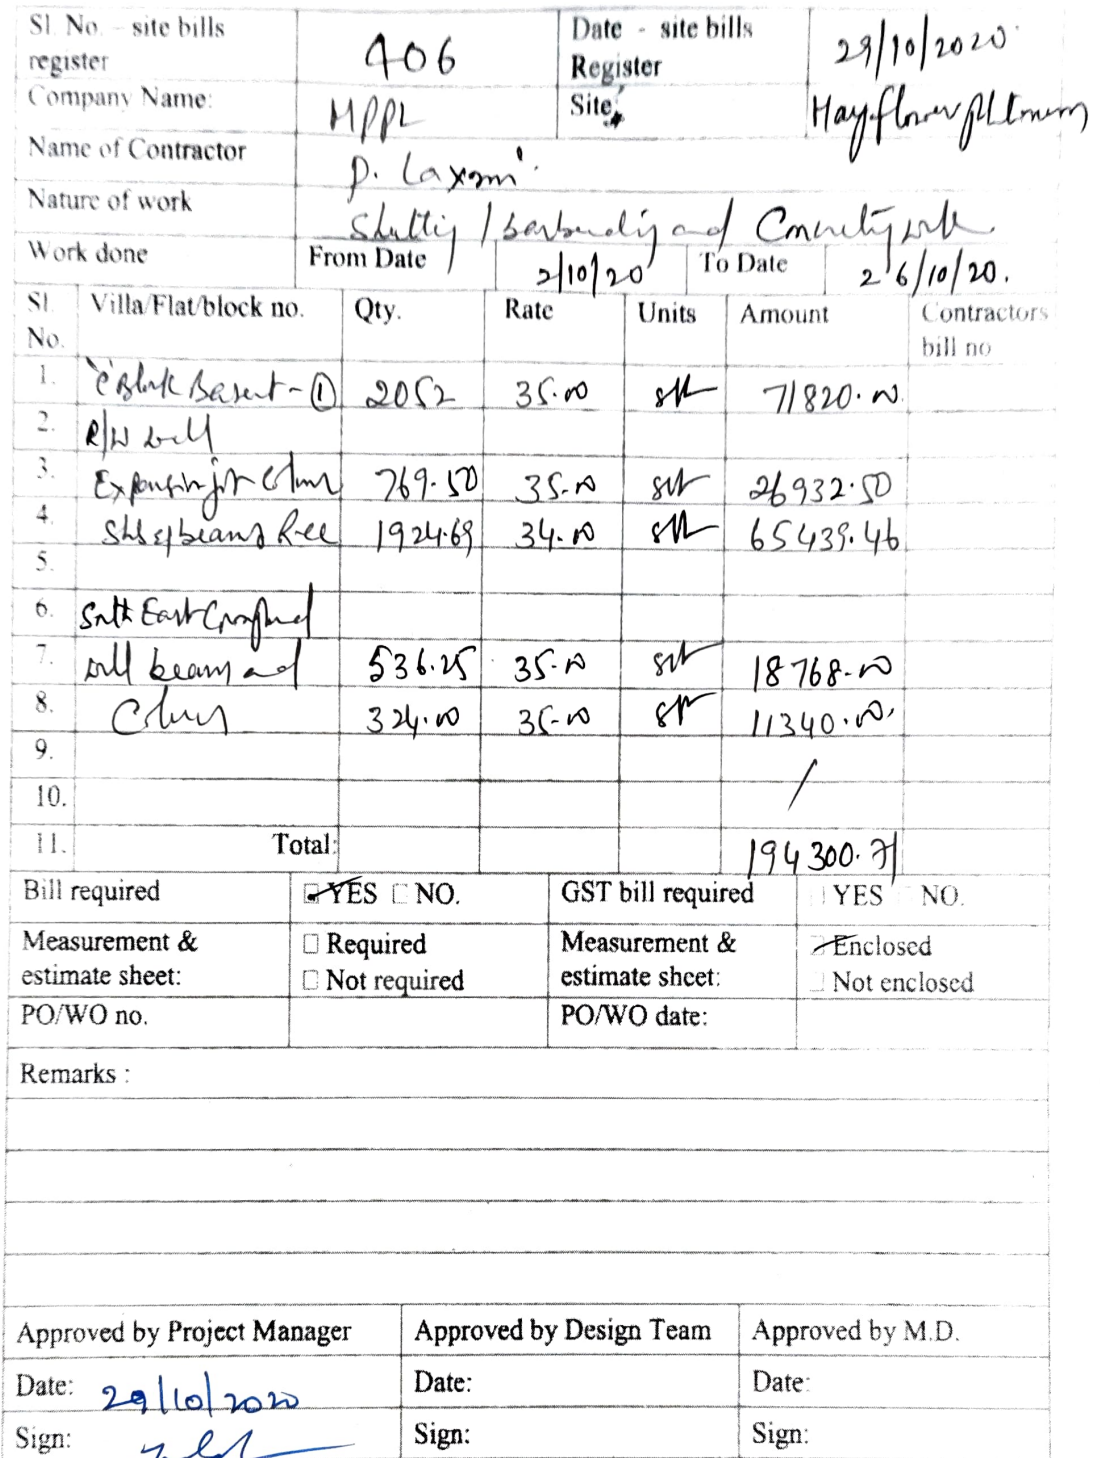 Sl. No. - site bills register 406 Date - site bills Register 29/10/2020
Company Name: MPPL Site: Mayflower platinum
Name of Contractor P. Laxmi
Nature of work Shutting / barbending and Concreting work
Work done From Date 2/10/20 To Date 26/10/20.
Sl. No. Villa/Flat/block no. Qty. Rate Units Amount Contractors bill no
1. 'C' Block Basent - ① 2052 35.00 sft 71820.00
2. R/W wall
3. Expansion jt 769.50 35.00 sft 26932.50
4. Slab & beams 1924.69 34.00 sft 65439.46
5.
6. South East
7. wall beams and 536.25 35.00 sft 18768.00
8. Columns 324.00 35.00 sft 11340.00
9.
10. /
11. Total: 194300.71
Bill required YES NO. GST bill required YES NO.
Measurement & estimate sheet: Required Not required Measurement & estimate sheet: Enclosed Not enclosed
PO/WO no. PO/WO date:
Remarks :
Approved by Project Manager Approved by Design Team Approved by M.D.
Date: 29/10/2020 Date: Date:
Sign: Sign: Sign: